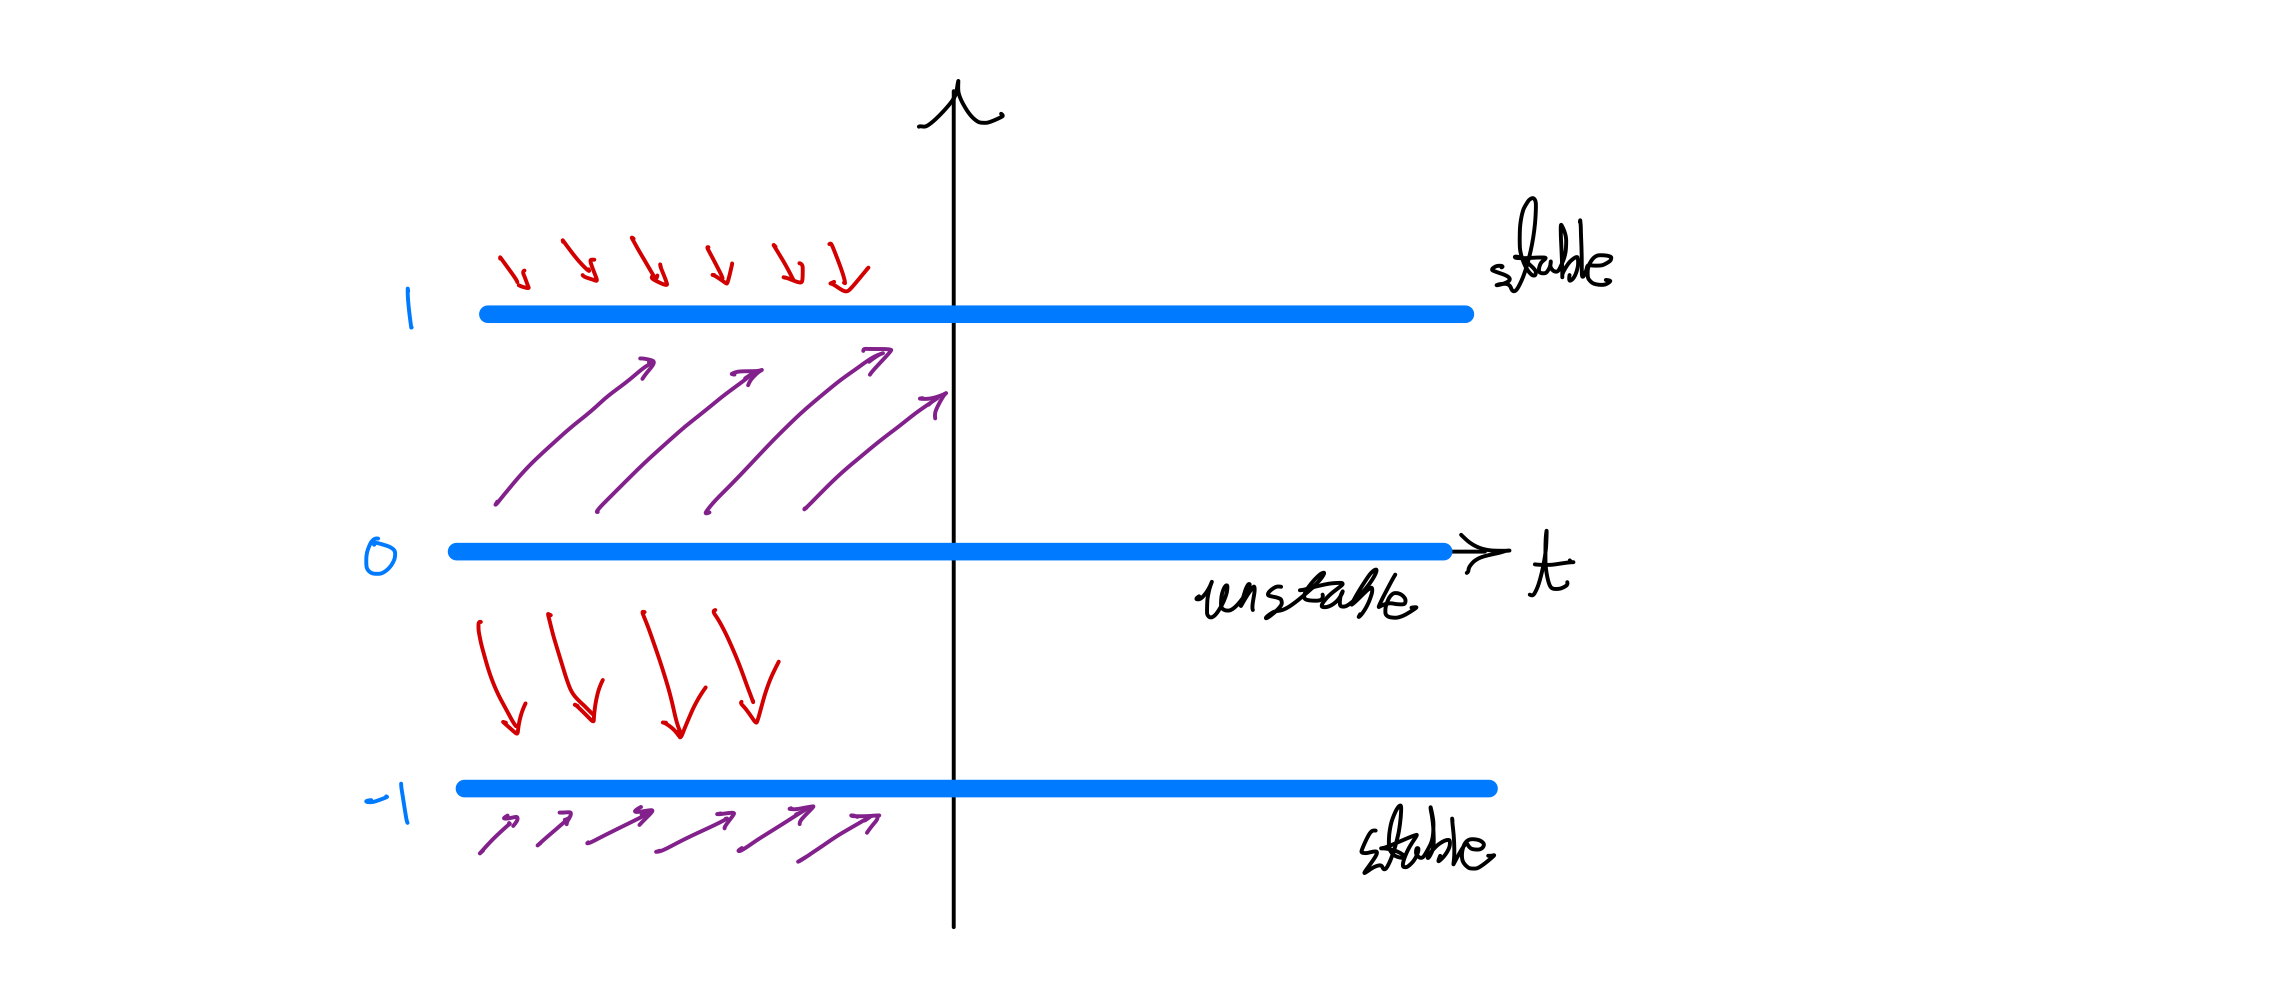 stable
1
0
t
unstable
-1
stable